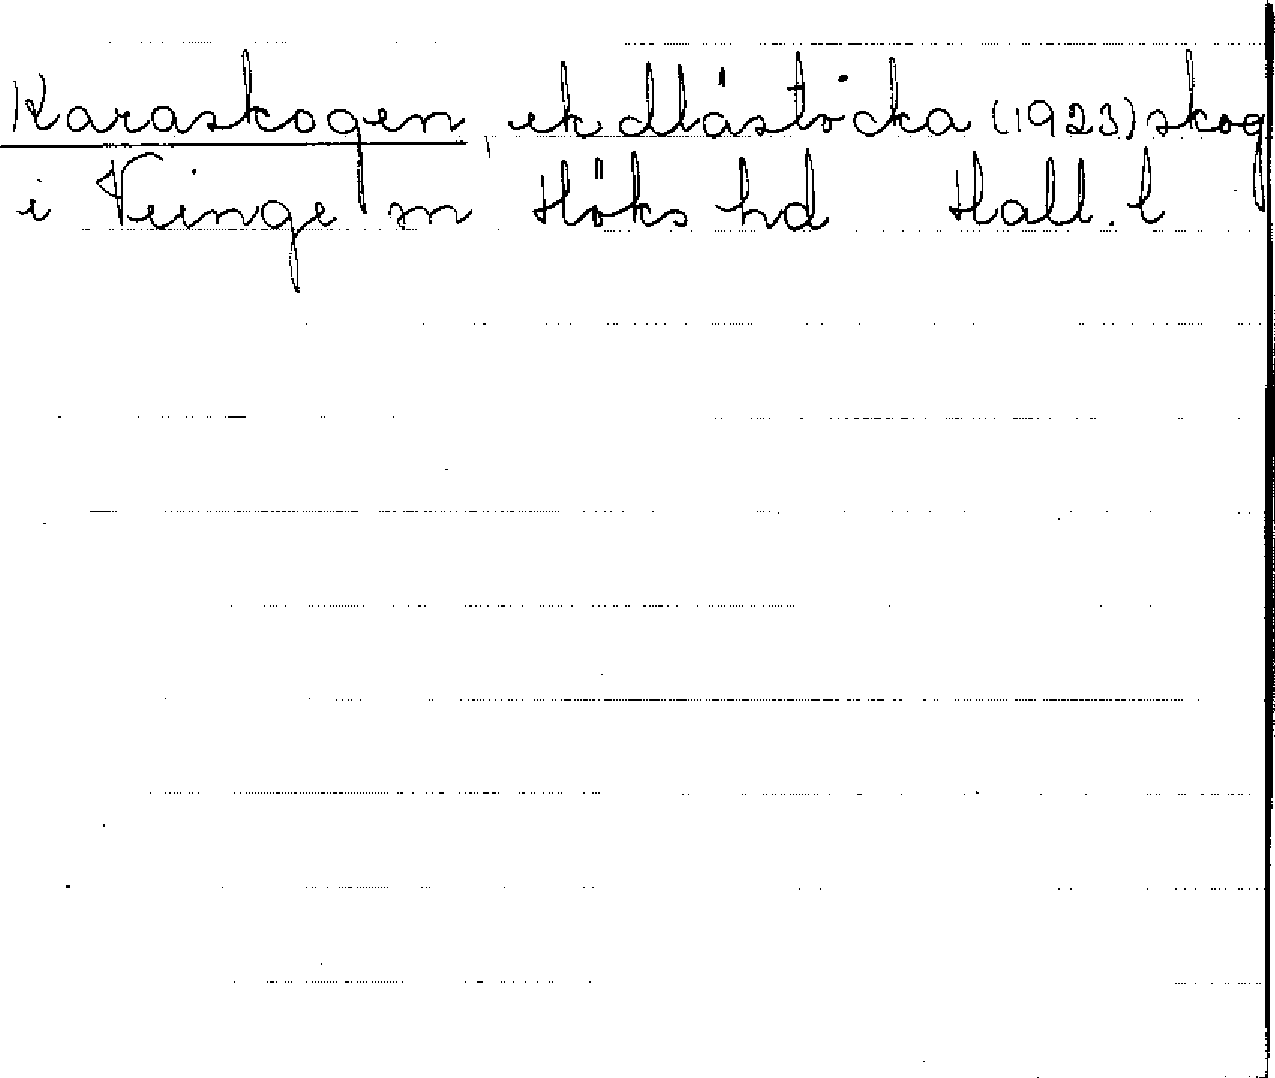 Karaskogen, ek Mästocka (1923) skog
i Veinge sn Höks hd Hall. l